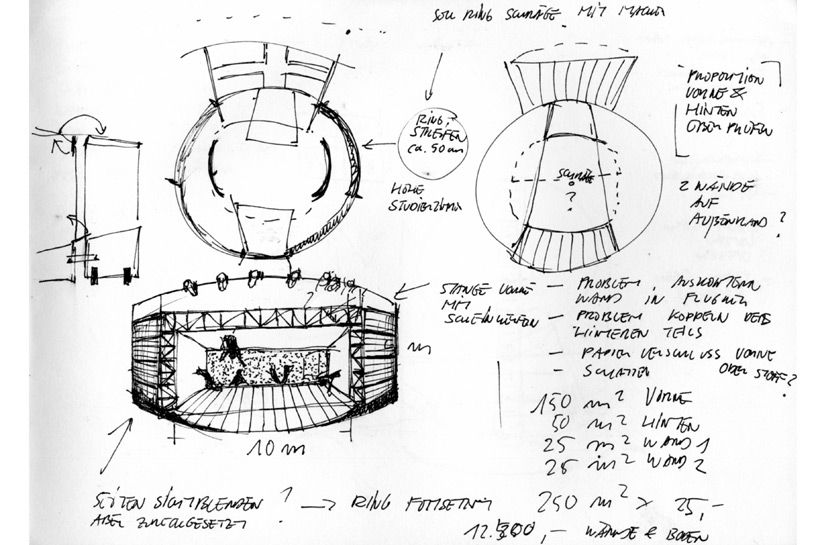 SOLL RING SCHRÄGE MIT
RING?
STREIFEN
ca. 50 cm
PROPORTION
VORNE &
HINTEN
ÜBERPRÜFEN
HÖHE
STUDIERZIMMER
SCHRÄGE
?
2 WÄNDE
AUF
AUßENRAND ?
STANGE VORNE
MIT
SCHEINWERFERN
— PROBLEM, AUSKONTERN
WAND IN
— PROBLEM KOPPELN DES
HINTEREN TEILS
— PAPIER VERSCHLUSS VORNE
— SCHATTEN ODER STOFF?
m
10 m
150 m² VORNE
50 m² HINTEN
25 m² WAND 1
25 m² WAND 2
SEITEN SICHTBLENDEN ?
ABER ZURÜCKGESETZT
→ RING FORTSETZUNG
250 m² × 25,-
12.500,- WÄNDE & BODEN